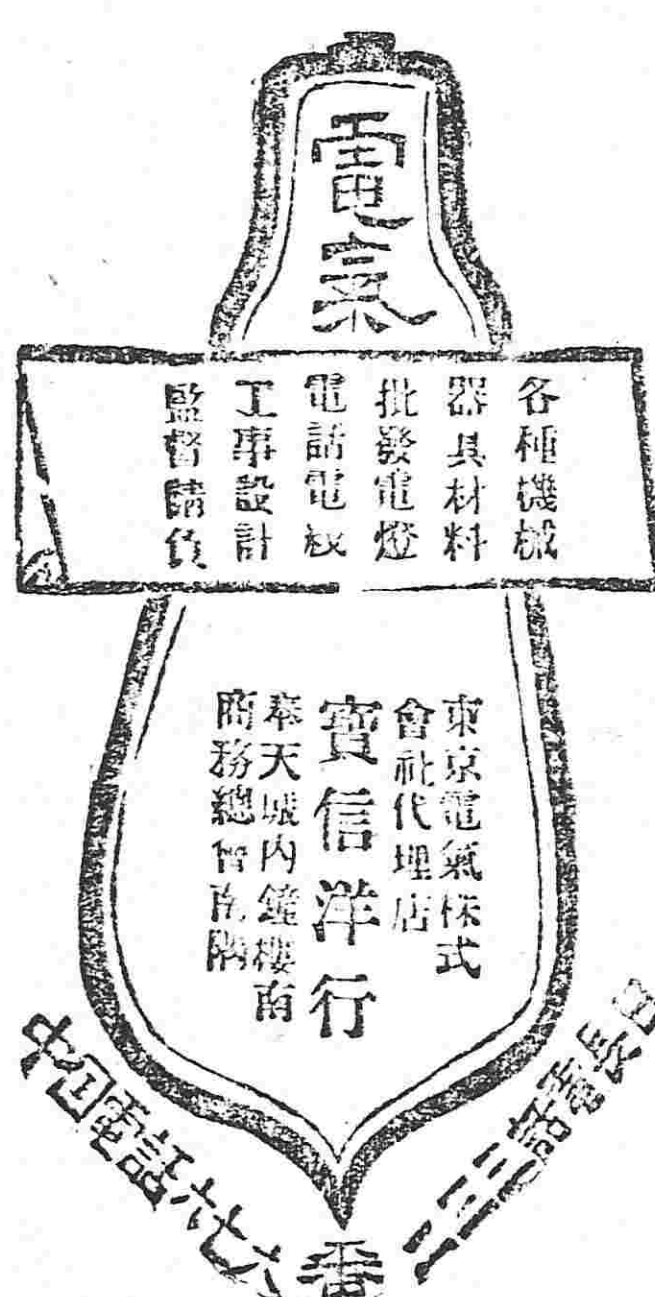 電氣
各種機械
器具材料
批發電燈
電話電板
工事設計
監督請負
東京電氣株式
會社代理店
寶信洋行
奉天城內鐘樓南
商務總會南隣
中國電話六七六番